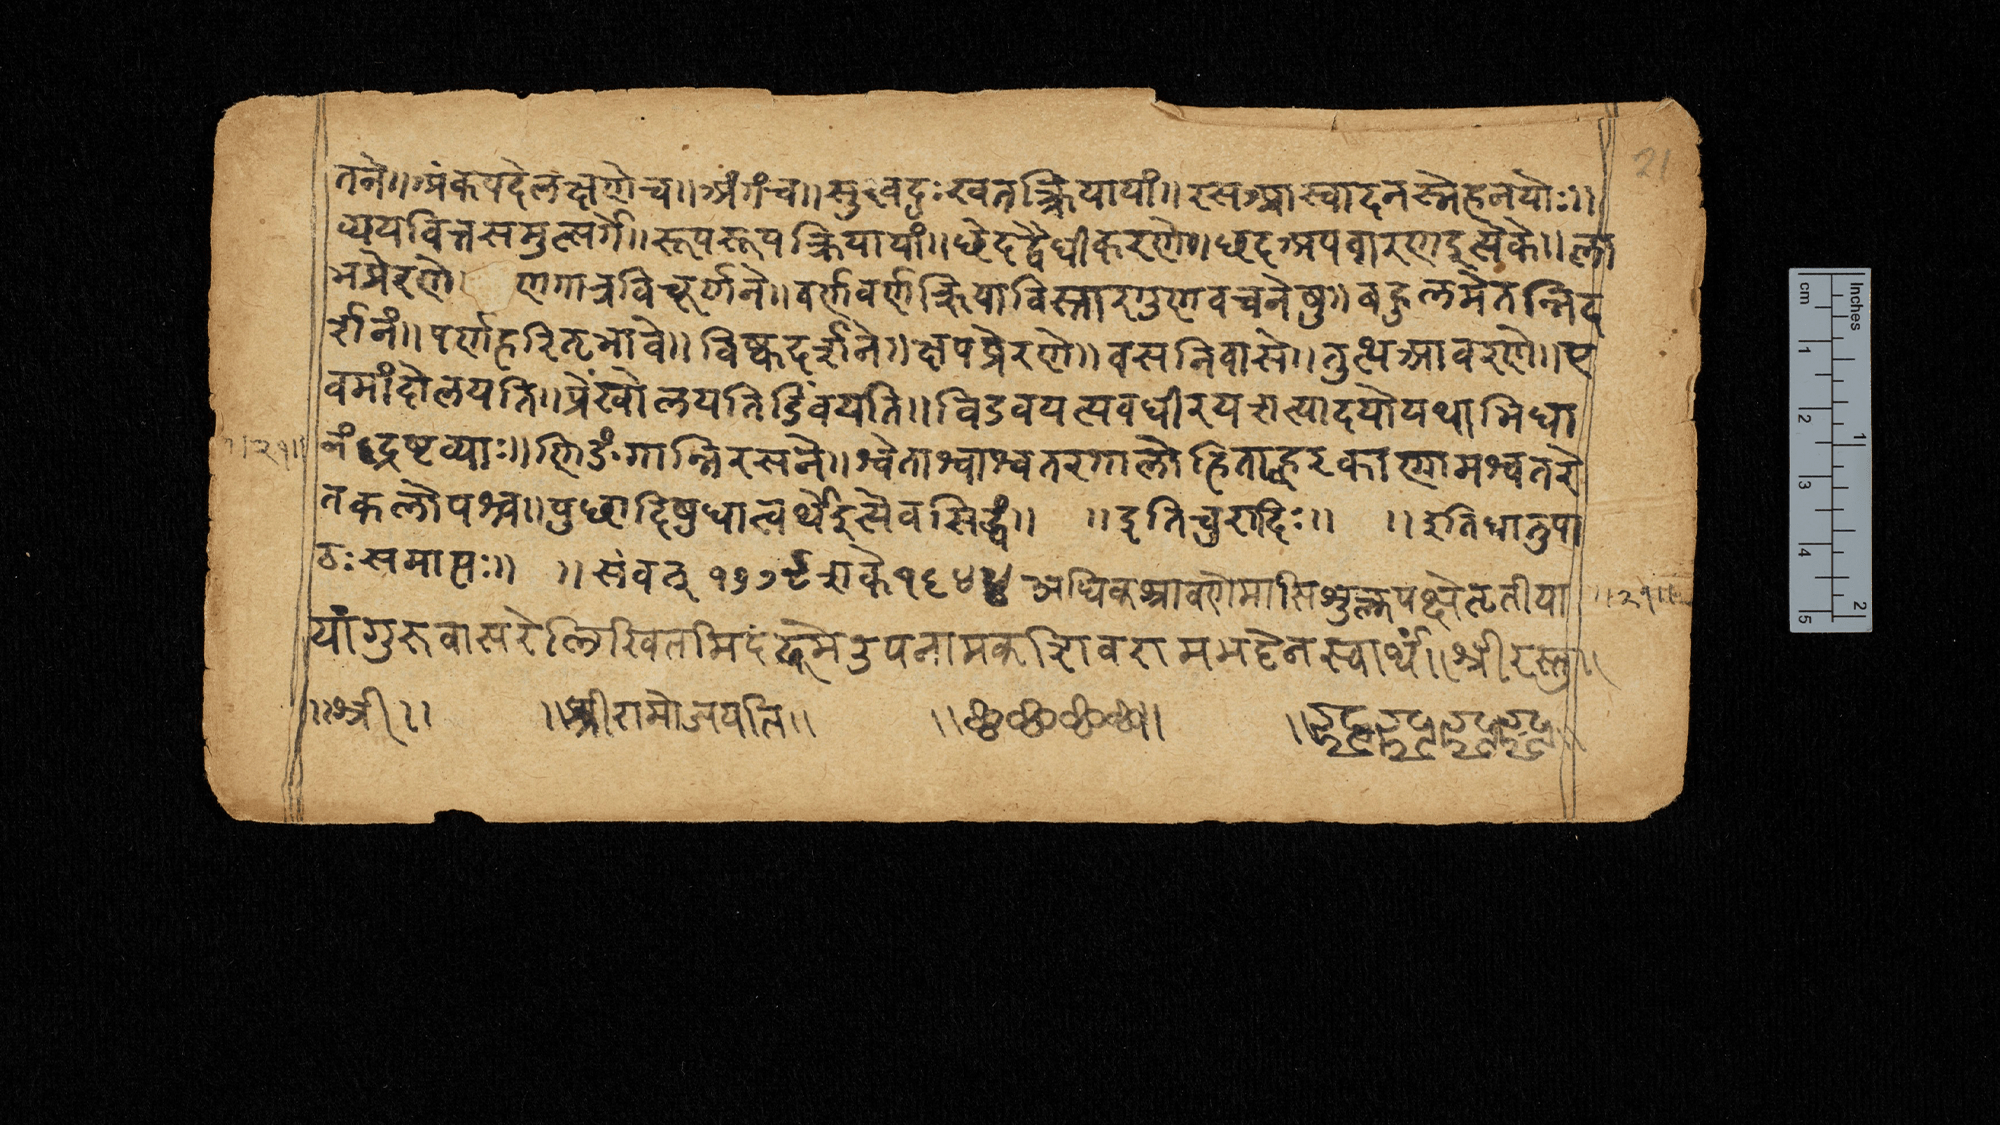 21
तने॥अंकपदेलक्षणेच॥अंगंच॥सुखदुःखतत्क्रियायां॥रसआस्वादनस्नेहनयोः॥
व्ययवित्तसमुत्सर्गे॥रूपरूपक्रियायां॥छेदद्वैधीकरणे॥छदअपवारणइत्येके॥ला
भप्रेरणे। णगात्रविचूर्णने॥वर्णवर्णक्रियाविस्तारगुणवचनेषु॥बहुलमेतन्निद
र्शनं॥पर्णहरितभावे॥विष्कदर्शने॥क्षपप्रेरणे॥वसनिवासे॥तुत्थआवरणे॥ए
वमांदोलयति॥प्रेंखोलयतिडिंवयति॥विडवयत्यवधीरयत्यादयोयथाभिधा
नंद्रष्टव्याः॥णिङंगान्निरसने॥श्वेताश्वाश्वतरगालोहिताह्वरकाणामश्वतरे
तकलोपश्च॥पुछादिषुधात्वर्थइत्येवसिद्धं॥ ॥इतिचुरादिः॥ ॥इतिधातुपा
ठः समाप्तः॥ ॥संवत् शके अधिकश्रावणेमासिशुक्लपक्षेतृतीया
यांगुरुवासरेलिखितमिदं उपनामकशिवरामभट्टेनस्वार्थं॥श्रीरस्तु॥
॥श्री॥ ॥श्रीरामोजयति॥ ॥छ॥छ॥छ॥छ॥
॥२१॥
॥२१॥